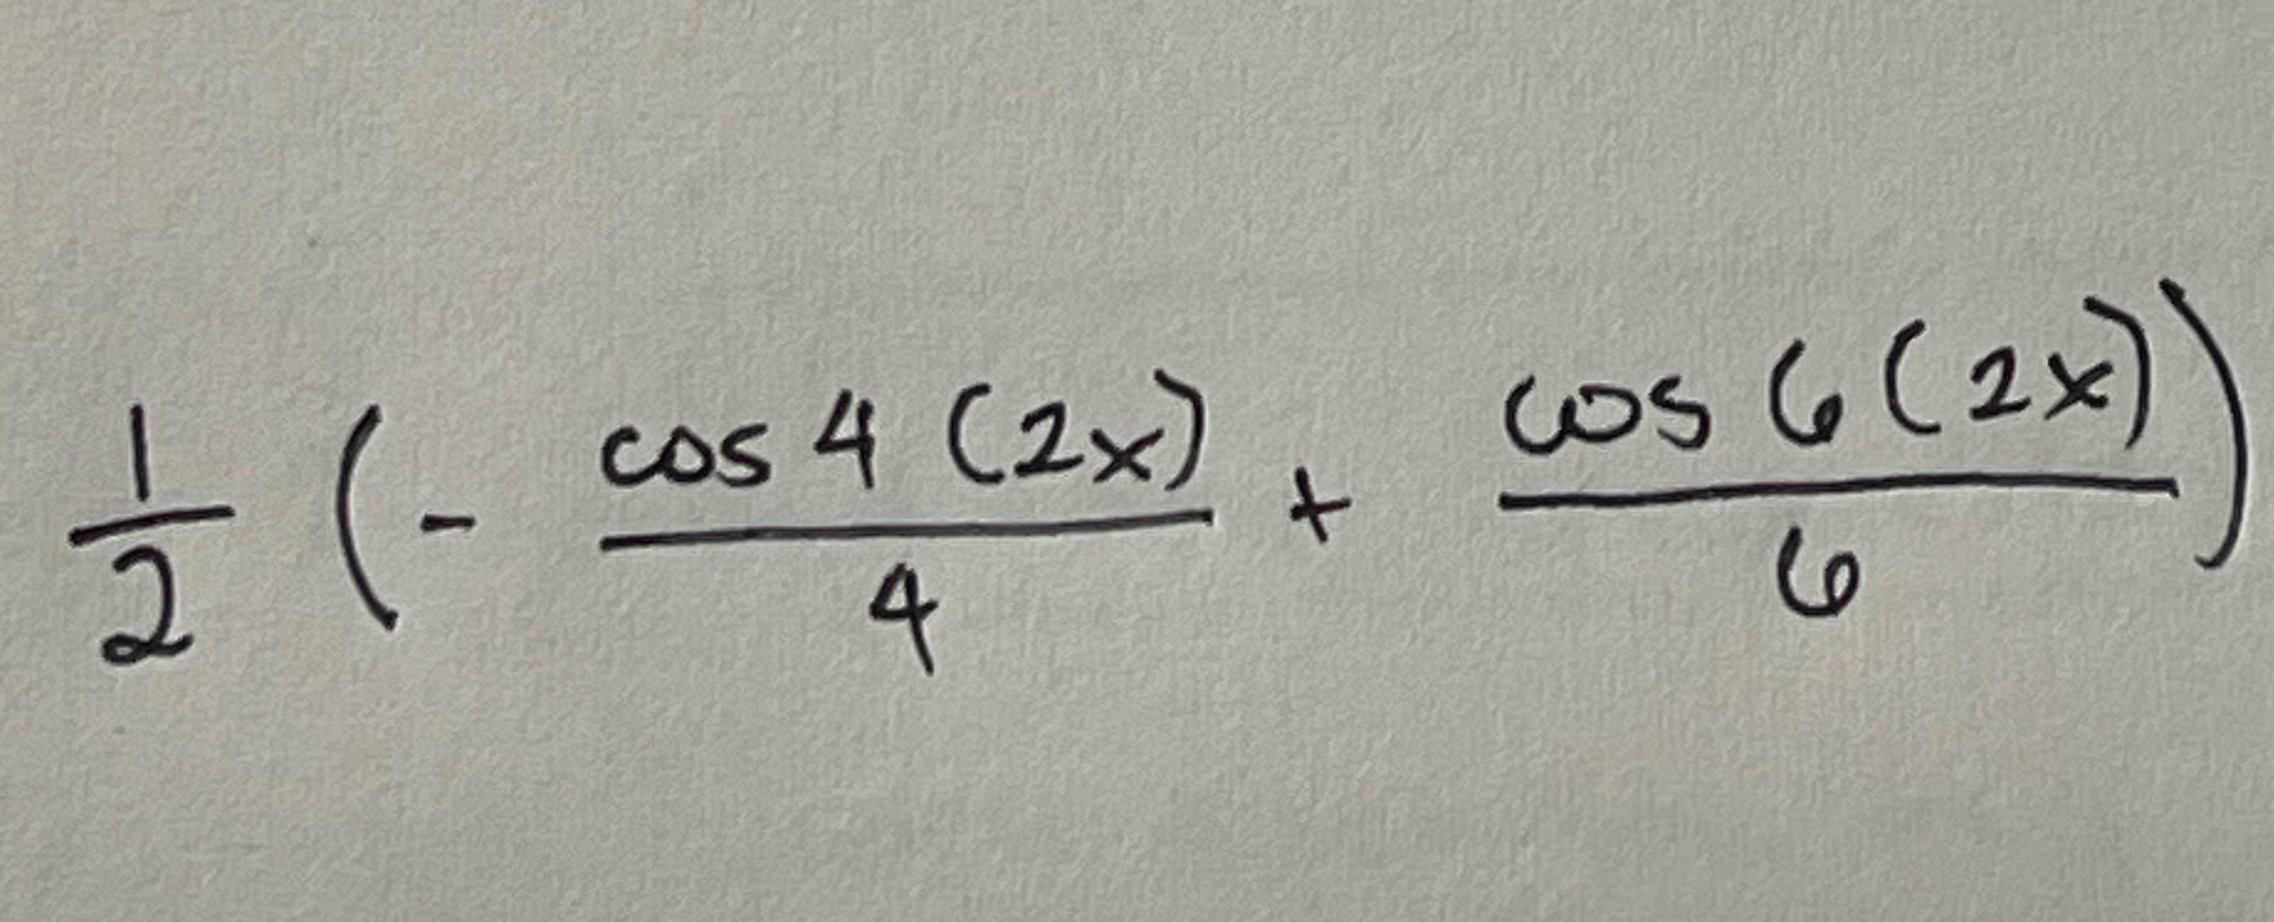 1/2 (- cos 4 (2x)/4 + cos 6 (2x)/6)